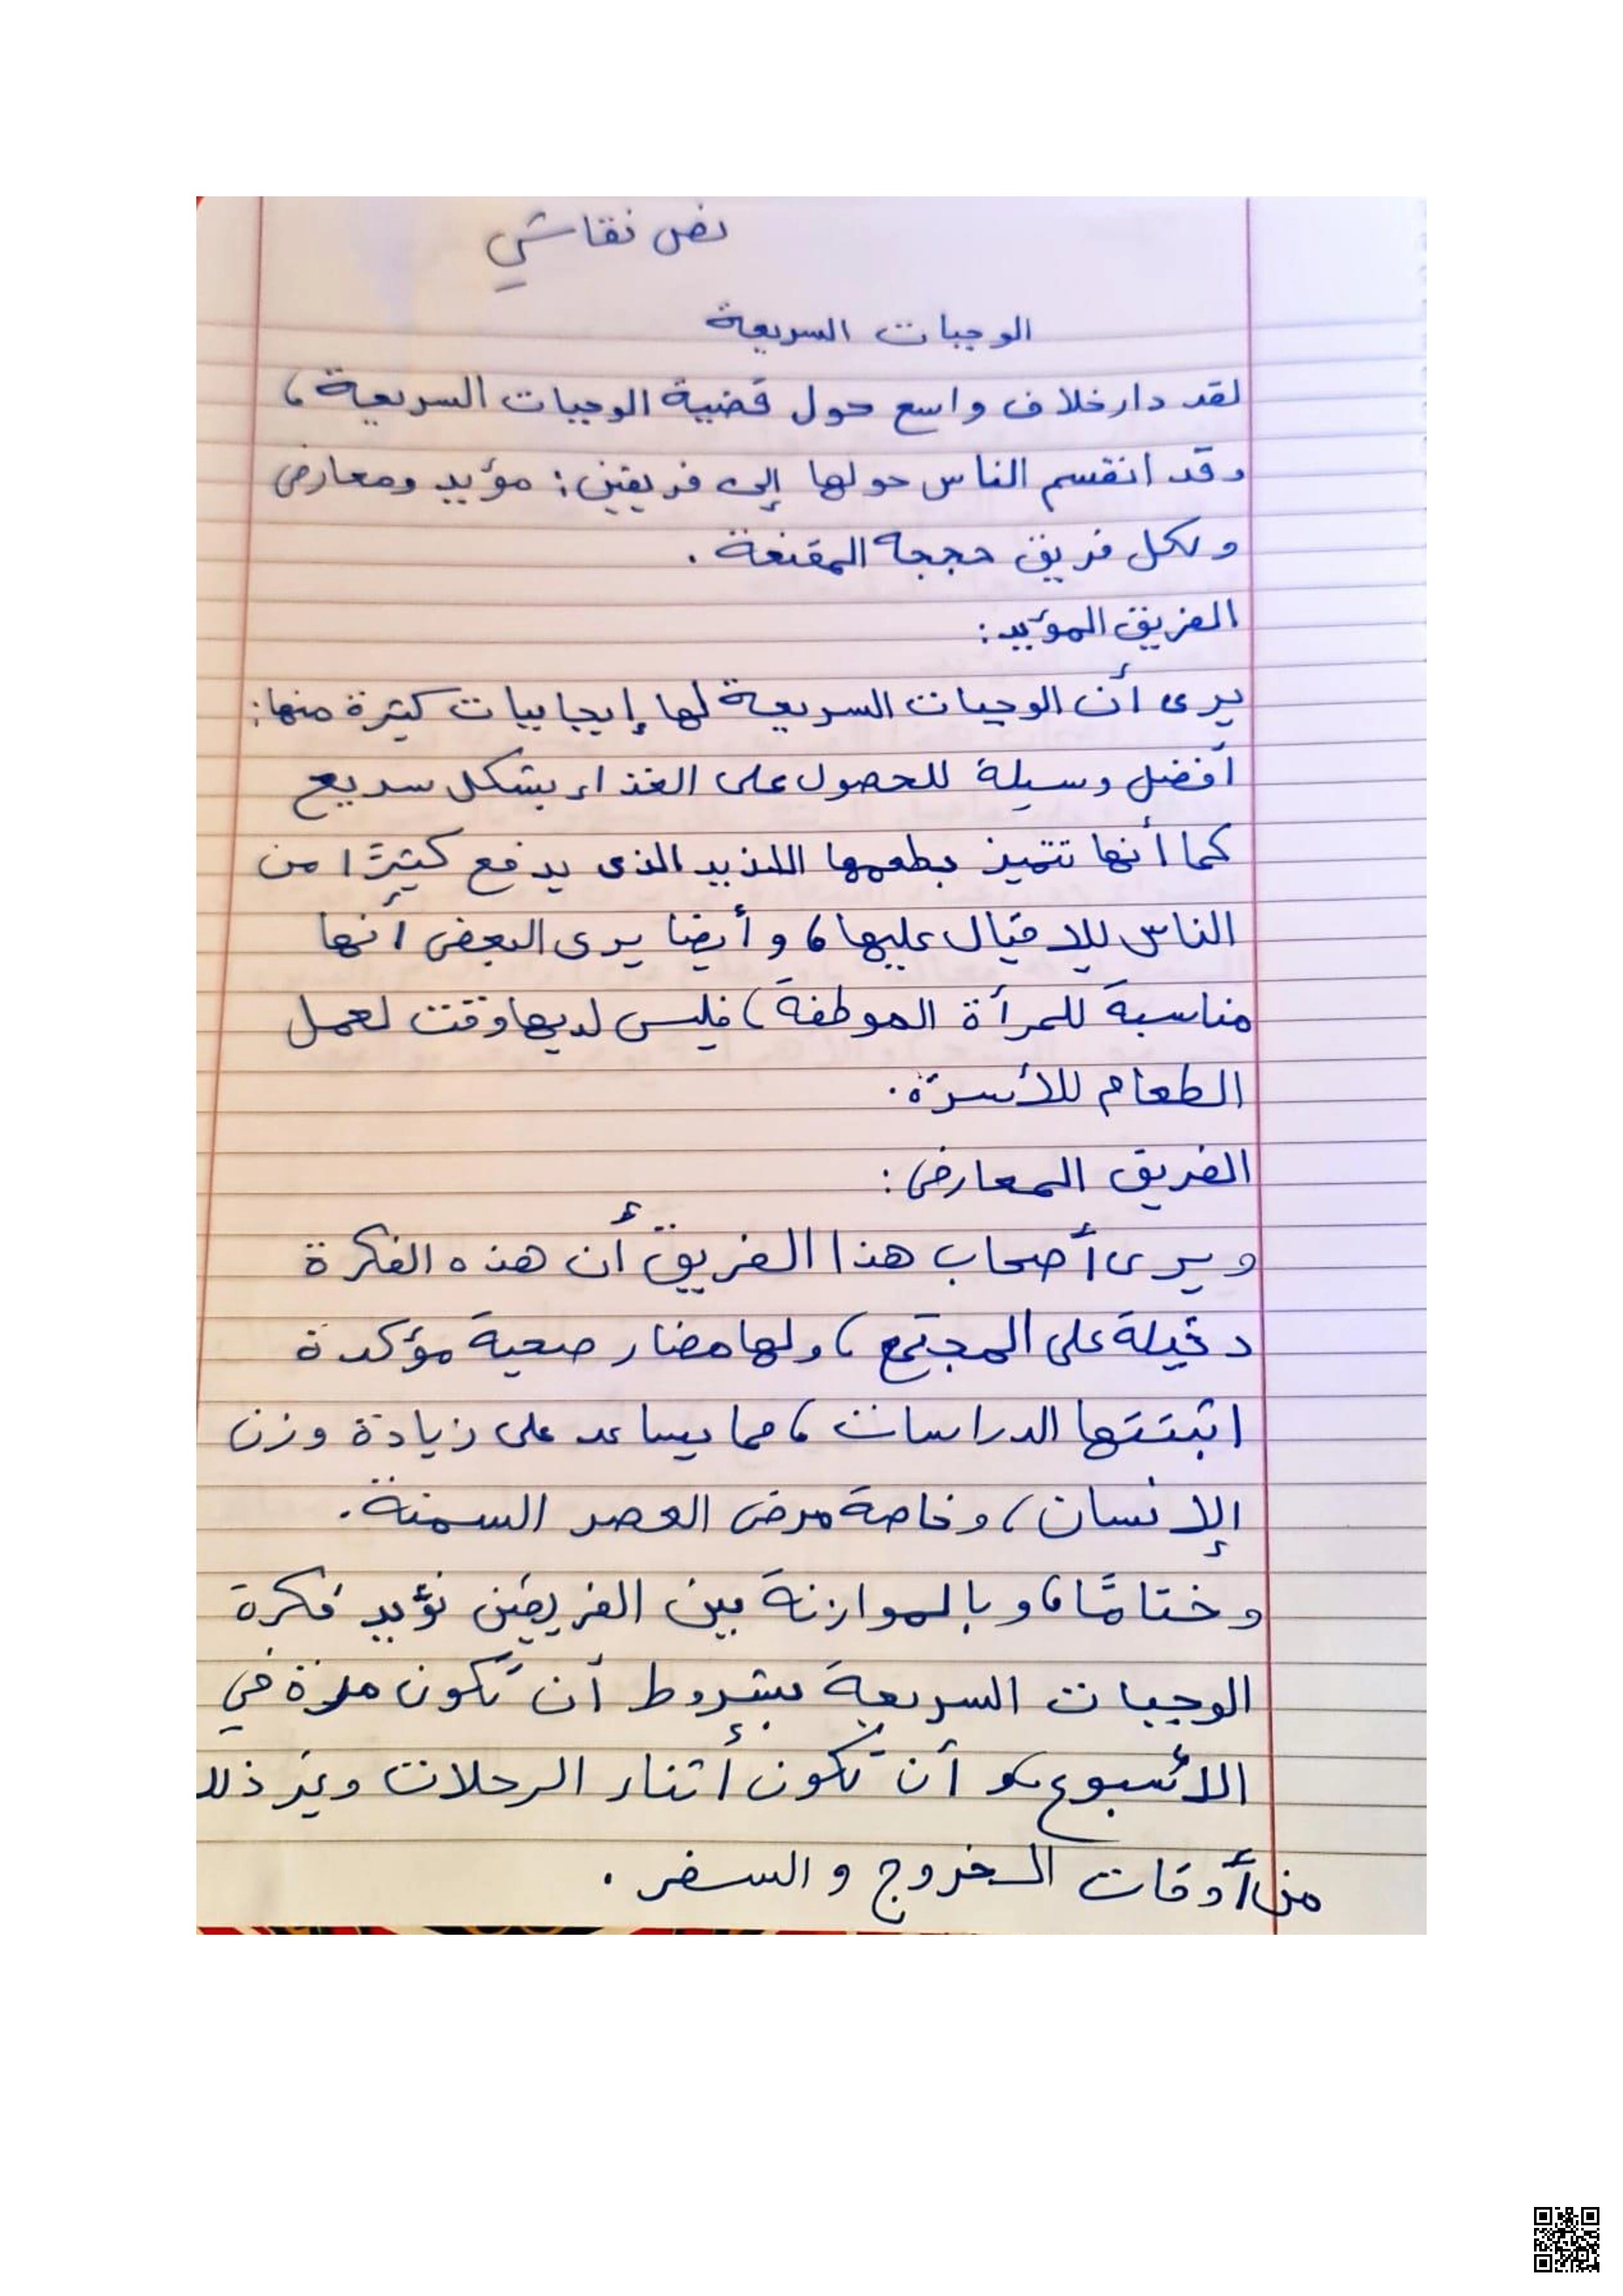 نص نقاشي
الوجبات السريعة
لقد دار خلاف واسع حول قضية الوجبات السريعة ،
وقد انقسم الناس حولها إلى فريقين : مؤيد ومعارض
ولكل فريق حججه المقنعة .
الفريق المؤيد :
يرى أن الوجبات السريعة لها إيجابيات كثيرة منها :
أفضل وسيلة للحصول على الغذاء بشكل سريع
كما أنها تتميز بطعمها اللذيذ الذى يدفع كثيرًا من
الناس للإقبال عليها ، وأيضا يرى البعض أنها
مناسبة للمرأة الموظفة ، فليس لديها وقت لعمل
الطعام للأسرة .
الفريق المعارض :
ويرى أصحاب هذا الفريق أن هذه الفكرة
دخيلة على المجتمع ، ولها مضار صحية مؤكدة
اثبتتها الدراسات ، مما يساعد على زيادة وزن
الإنسان ، وخاصة مرض العصر السمنة .
وختامًا ، وبالموازنة بين الفريقين نؤيد فكرة
الوجبات السريعة بشروط أن تكون مرة في
الأسبوع ، أو أن تكون أثناء الرحلات وغير ذلك
من أوقات الخروج والسفر .